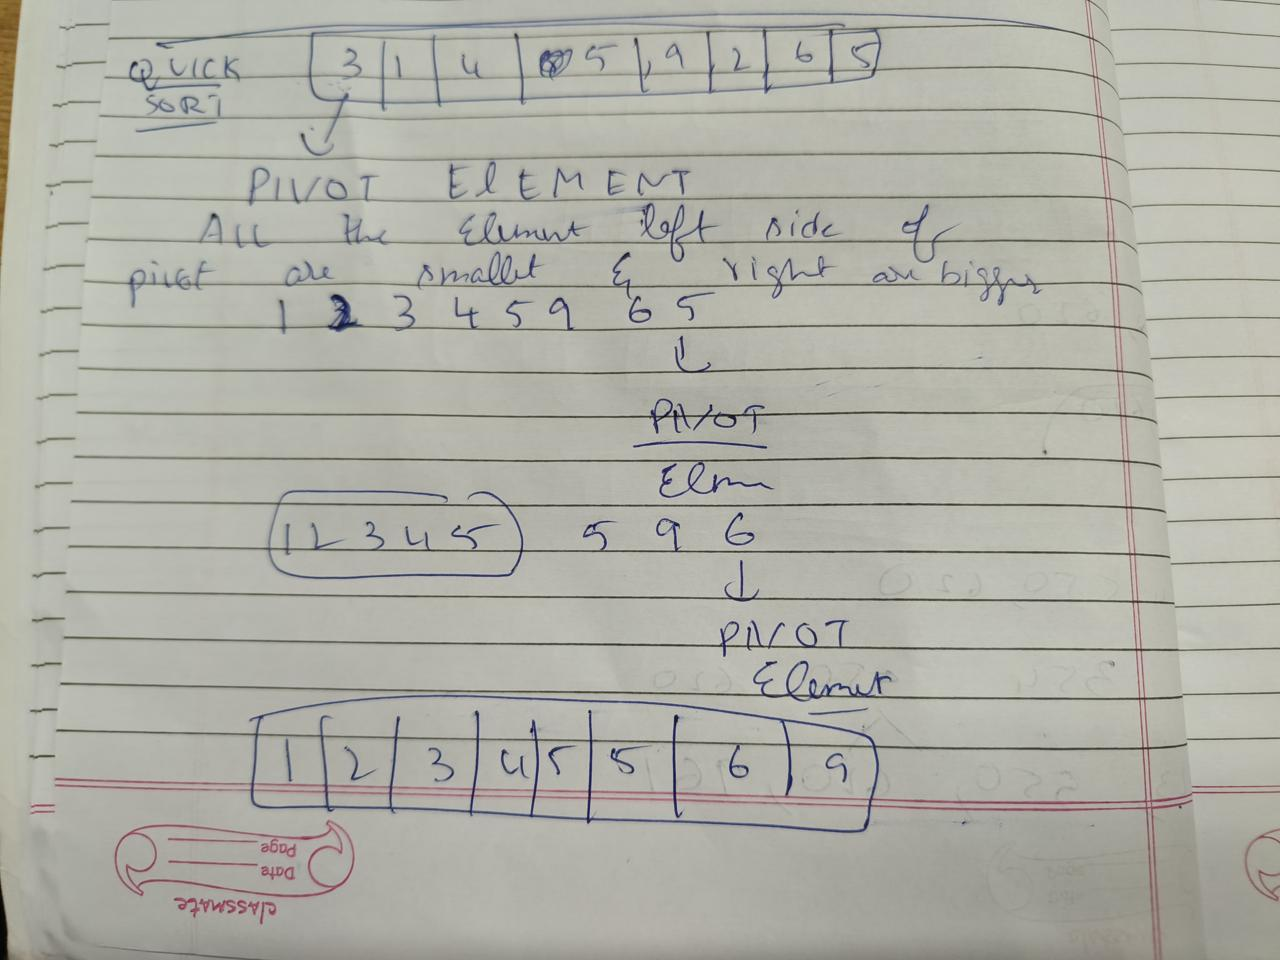 QUICK SORT
3 1 4 5 9 2 6 5
PIVOT ElEMENT
All the Element left side of
pivot are smallet & right are bigger
1 2 3 4 5 9 6 5
PIVOT
Elem
1 2 3 4 5 5 9 6
PIVOT
Element
1 2 3 4 5 5 6 9
Page
Date
classmate